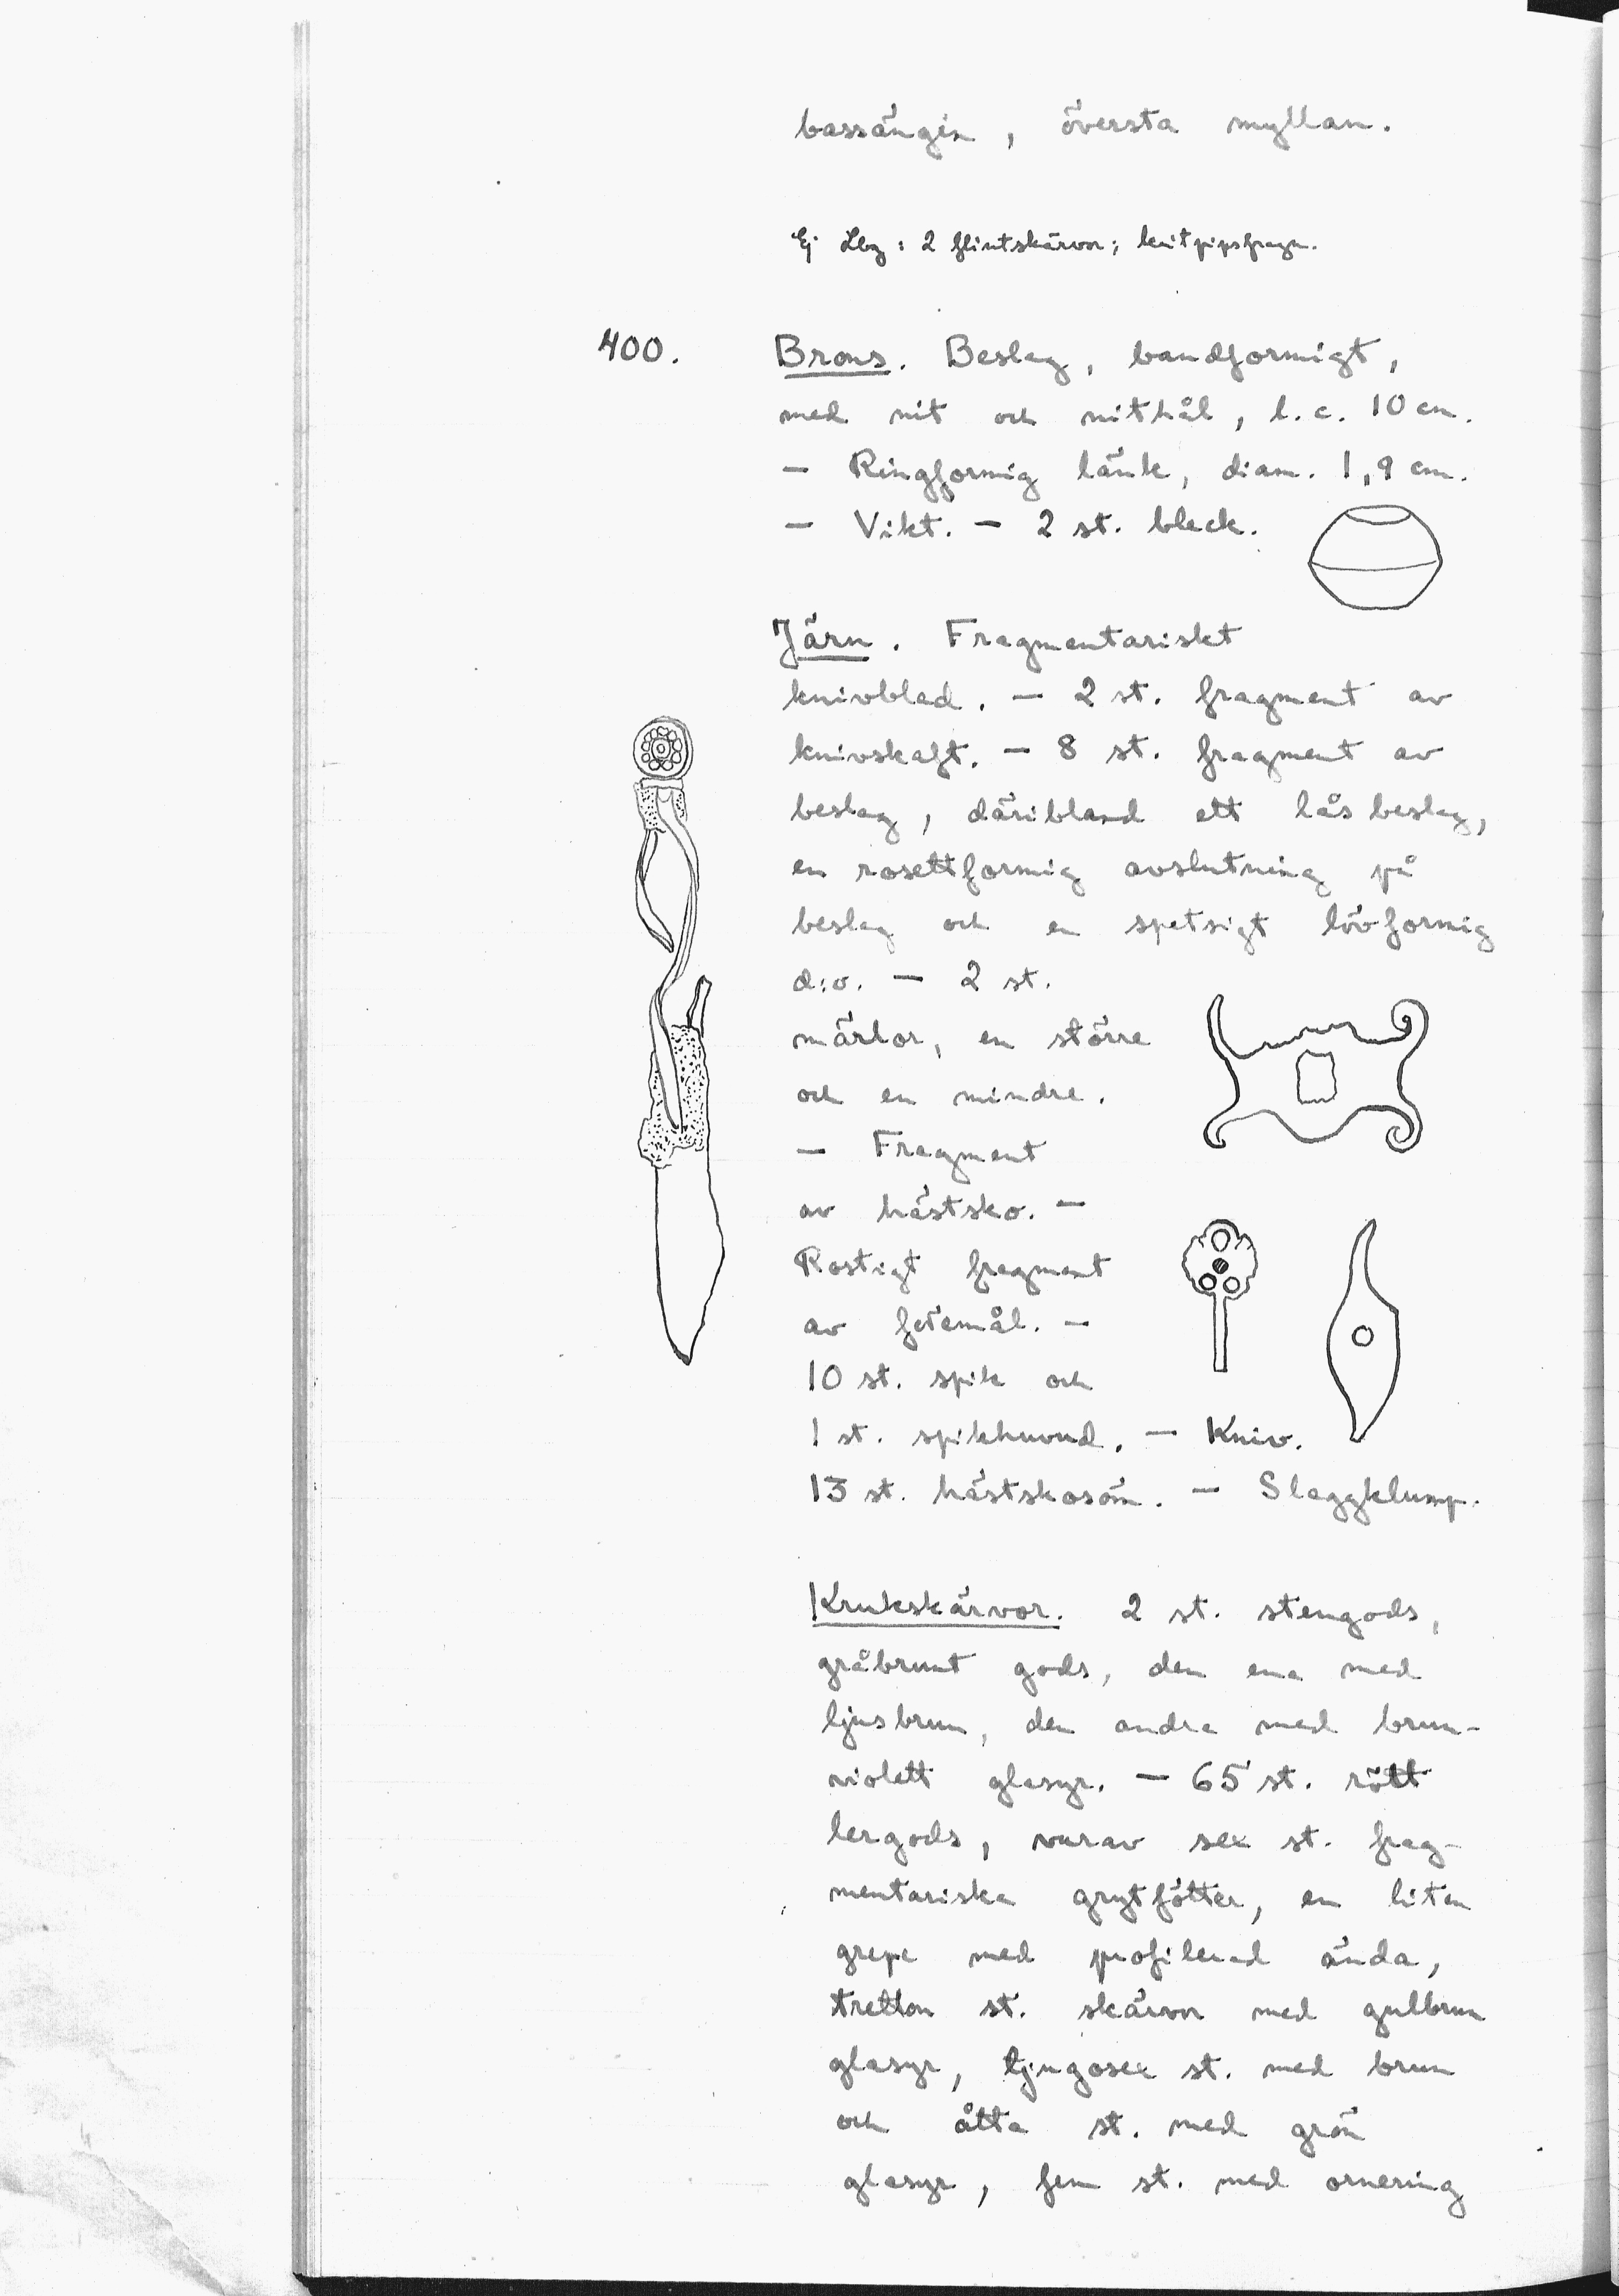 bassängen, översta myllan.
Ej Lbg: 2 flintskärvor; kritpipsfragm.
400. Brons. Beslag, bandformigt,
med nit och nithål, l. c. 10 cm.
— Ringformig länk, diam. 1,9 cm.
— Vikt. — 2 st. bleck.
Järn. Fragmentariskt
knivblad. — 2 st. fragment av
knivskaft. — 8 st. fragment av
beslag, däribland ett låsbeslag,
en rosettformig avslutning på
beslag och en spetsigt lövformig
d:o. — 2 st.
märlor, en större
och en mindre.
— Fragment
av hästsko. —
Rostigt fragment
av föremål. —
10 st. spik och
1 st. spikhuvud. — Kniv.
13 st. hästskosöm. — Slaggklump.
Krukskärvor. 2 st. stengods,
gråbrunt gods, den ena med
ljusbrun, den andra med brun-
violett glasyr. — 65 st. rött
lergods, varav sex st. frag-
mentariska grytfötter, en liten
grepe med profilerad ända,
tretton st. skärvor med gulbrun
glasyr, tjugosex st. med brun
och åtta st. med grön
glasyr, fem st. med ornering